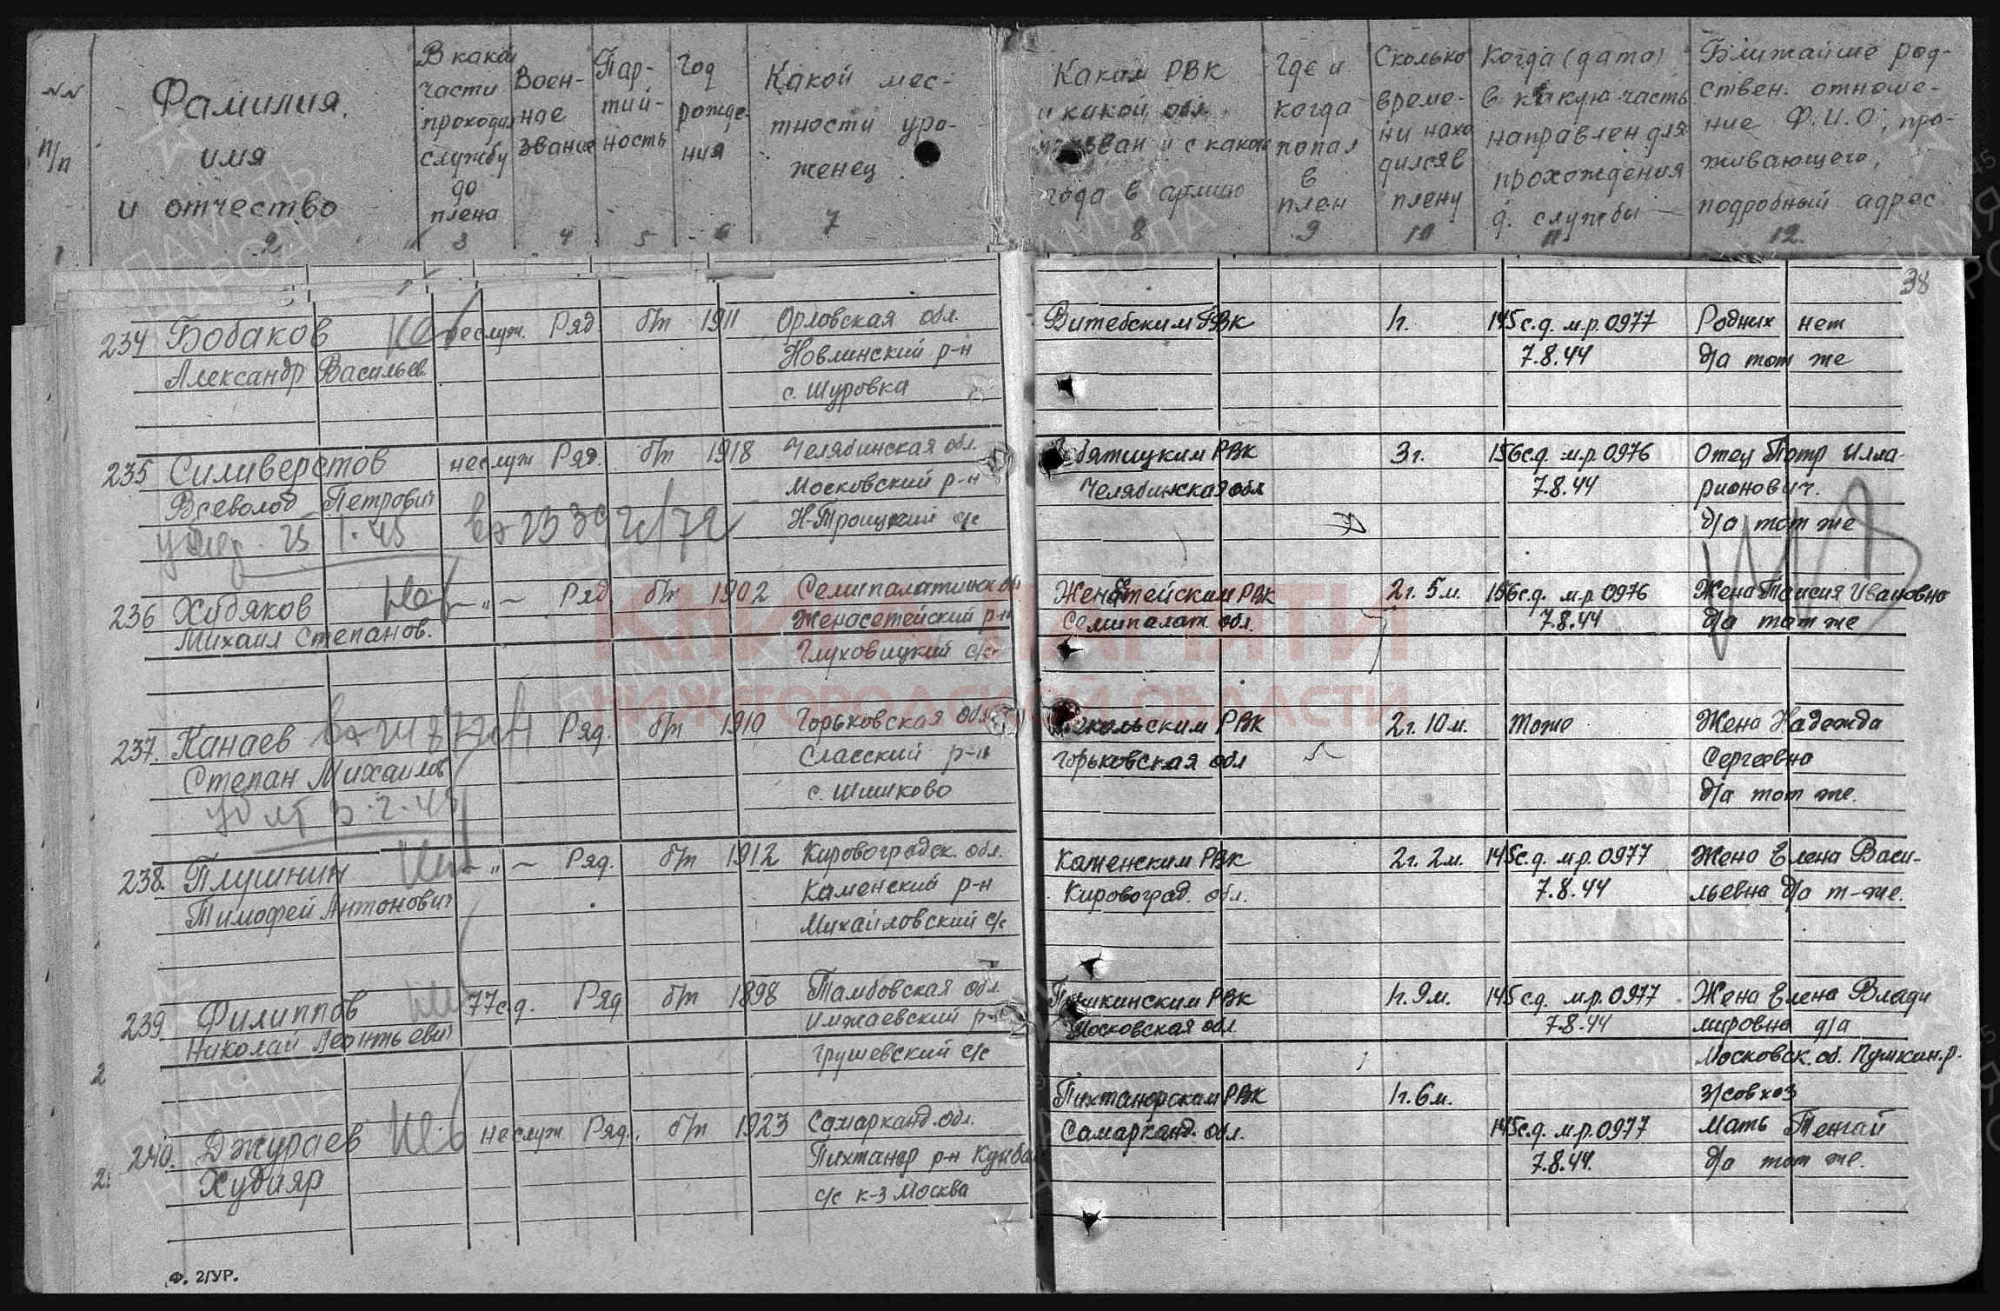 NN п/п
Фамилия, имя и отчество
В какой части проходил службу до плена
Военное звание
Партийность
Год рождения
Какой местности уроженец
Каким РВК и какой обл. призван и с какого года в армию
Где и когда попал в плен
Сколько времени находился в плену
Когда (дата) в какую часть направлен для прохождения д. службы
Ближайшие родствен. отношение Ф.И.О, проживающего, подробный адрес
1 2 3 4 5 6 7 8 9 10 11 12.
38
234 Бобаков неслуж. Ряд б/п 1911 Орловская обл. Витебским РВК 1г. 145с.д. м.р.0977 Родних нет
Александр Васильев. Новлинский р-н 7.8.44 д/а тот же
с. Шуровка
235 Силиверстов неслуж Ряд. б/п 1918 Челябинская обл. РВК 3г. 156с.д. м.р.0976 Отец Петр Илла-
Всеволод Петрович Московский р-н Челябинская обл 7.8.44 рионович.
25 1.45 Н-Троицкий с/с д/а тот же
236 Худяков — „ — Ряд б/п 1902 Семипалатинск об РВК 2г. 5м. 156с.д. м.р.0976 Жена Таисия Ивановна
Михаил Степанов. Женасетейский р-н Семипалат. обл. 7.8.44 д/а тот же
Глуховицкий с/с
237. Канаев Ряд. б/п 1910 Горьковская обл РВК 2г. 10м. тоже Жена Надежда
Степан Михайлов Спасский р-н Горьковская обл Сергеевна
3.2.45 с. Шишково д/а тот же.
238. Плушнин — „ — Ряд. б/п 1912 Кировоградск. обл. Каменским РВК 2г. 2м. 145с.д. м.р.0977 Жена Елена Васи-
Тимофей Антонович Каменский р-н Кировоград. обл. 7.8.44 льевна д/а т-же.
Михайловский с/с
239 Филиппов 77с.д. Ряд б/п 1898 Тамбовская обл. Пушкинским РВК 1г. 9м. 145с.д. м.р.0977 Жена Елена Влади
Николай Леонтьевич Имжаевский р-н Московская обл. 7.8.44 мировна д/а
2 Грушевский с/с Московск. об. Пушкин.р.
Пихтанорскам РВК 1г. 6м. з/совхоз
240. Джураев неслуж Ряд. б/п 1923 Самарканд. обл. Самарканд. обл. 145с.д. м.р.0977 Мать Тенгай
2 Худияр Пихтанор р-н 7.8.44. д/а тот же.
с/с к-з Москва
Ф. 2/УР.
КНИГА ПАМЯТИ
НИЖЕГОРОДСКОЙ ОБЛАСТИ
ПАМЯТЬ НАРОДА